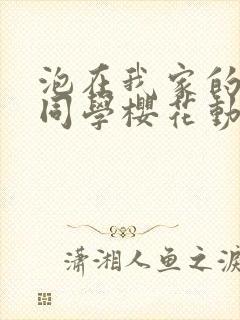 泡在我家的
同學櫻花動
瀟湘人鱼之淚